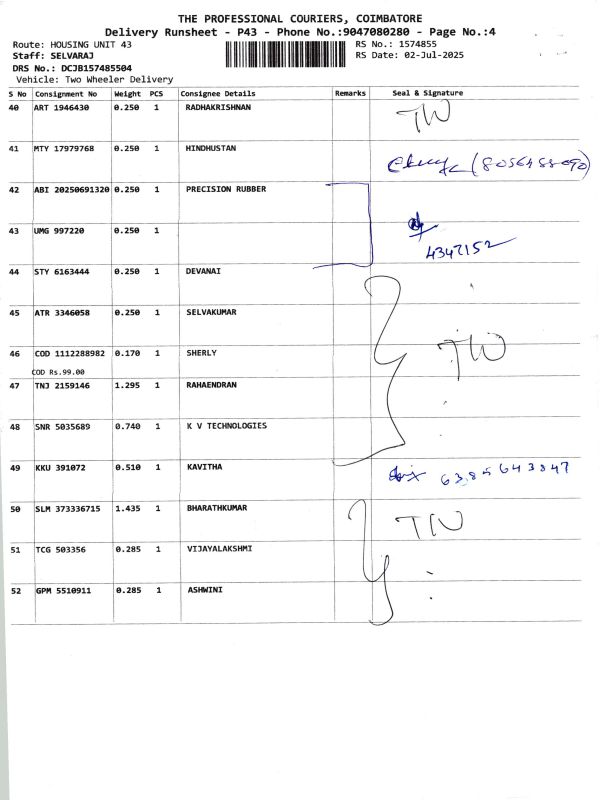 THE PROFESSIONAL COURIERS, COIMBATORE
Delivery Runsheet - P43 - Phone No.:9047080280 - Page No.:4
Route: HOUSING UNIT 43 RS No.: 1574855
Staff: SELVARAJ RS Date: 02-Jul-2025
DRS No.: DCJB157485504
Vehicle: Two Wheeler Delivery
S No Consignment No Weight PCS Consignee Details Remarks Seal & Signature
40 ART 1946430 0.250 1 RADHAKRISHNAN TW
41 MTY 17979768 0.250 1 HINDUSTAN
42 ABI 20250691320 0.250 1 PRECISION RUBBER
43 UMG 997220 0.250 1
4347152
44 STY 6163444 0.250 1 DEVANAI
45 ATR 3346058 0.250 1 SELVAKUMAR
46 COD 1112288982 0.170 1 SHERLY TW
COD Rs.99.00
47 TNJ 2159146 1.295 1 RAHAENDRAN
48 SNR 5035689 0.740 1 K V TECHNOLOGIES
49 KKU 391072 0.510 1 KAVITHA 6385643847
50 SLM 373336715 1.435 1 BHARATHKUMAR TW
51 TCG 503356 0.285 1 VIJAYALAKSHMI
52 GPM 5510911 0.285 1 ASHWINI